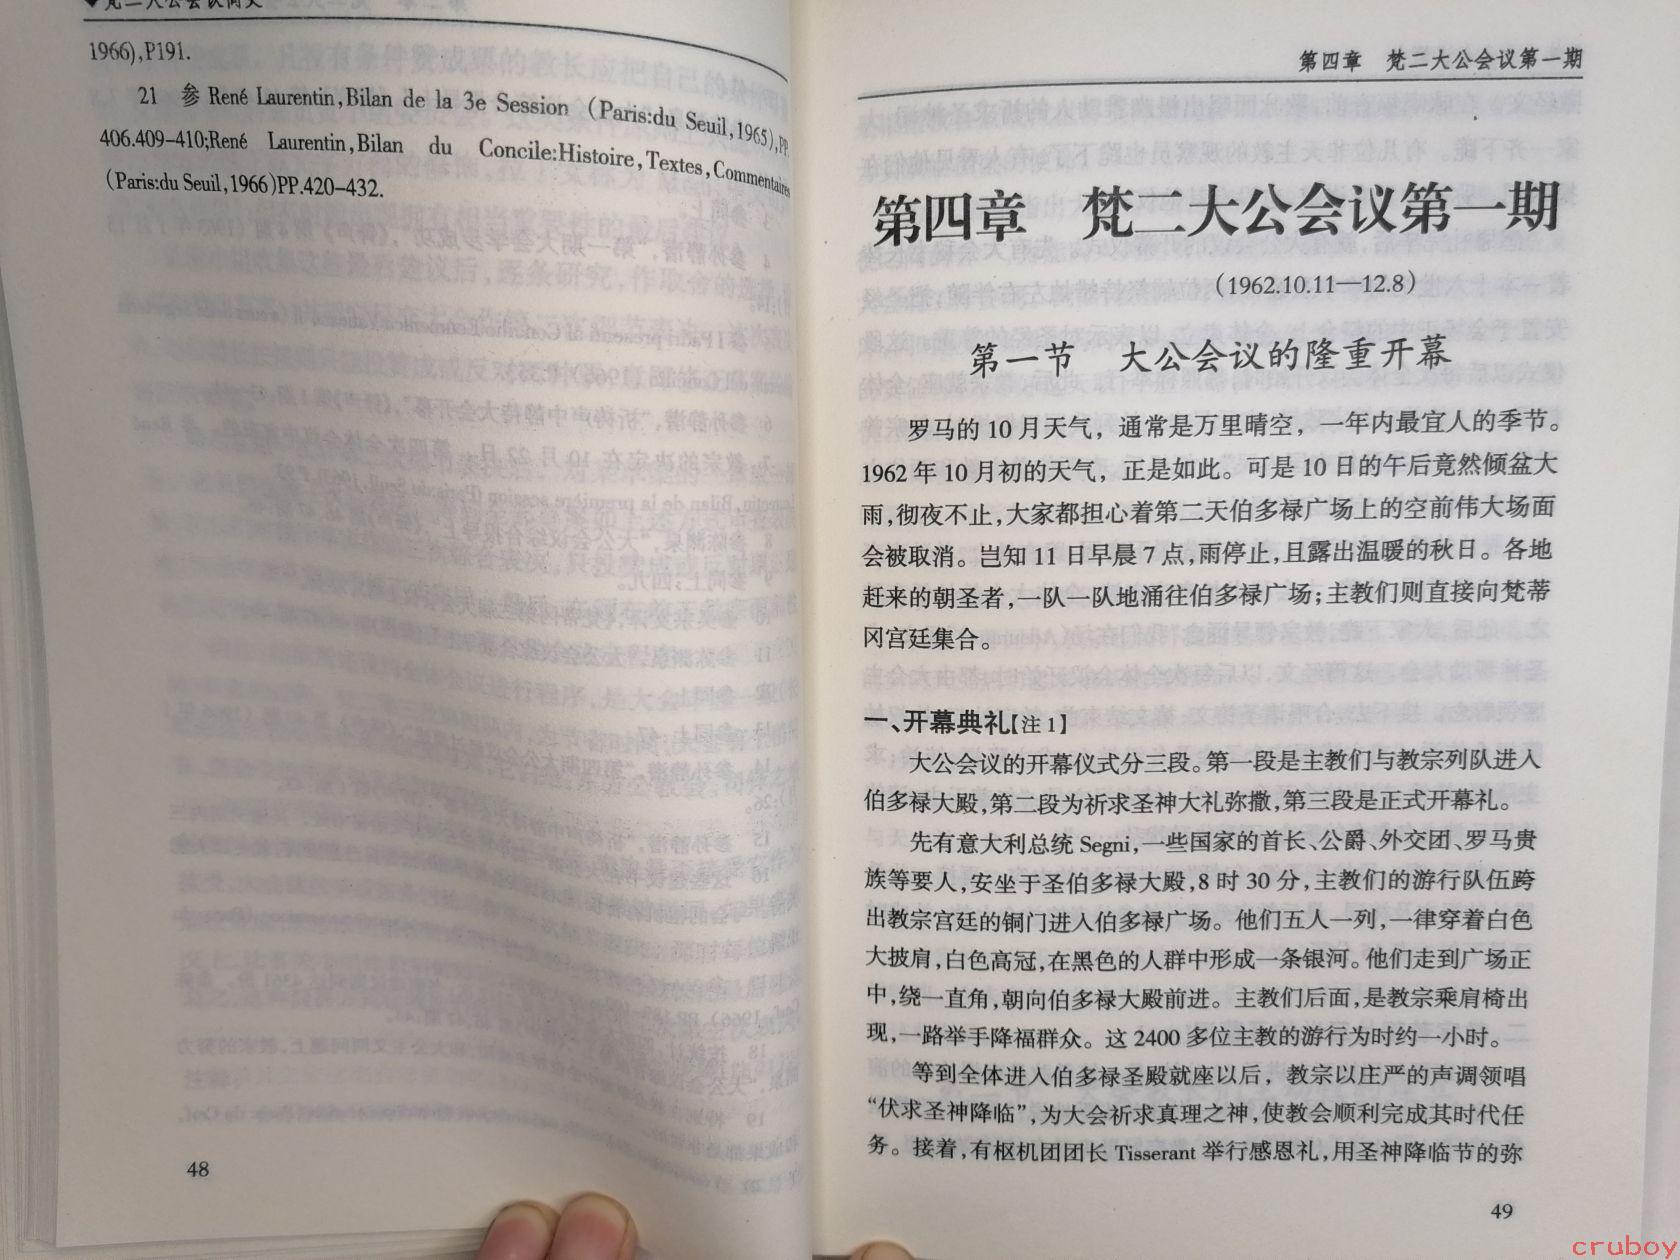 梵二大公会议简史
1966),P191.
21 参 René Laurentin,Bilan de la 3e Session (Paris:du Seuil,1965),PP.
406.409–410;René Laurentin,Bilan du Concile:Histoire,Textes,Commentaires
(Paris:du Seuil,1966)PP.420–432.
48
第四章 梵二大公会议第一期
第四章 梵二大公会议第一期
(1962.10.11—12.8)
第一节 大公会议的隆重开幕
罗马的 10 月天气，通常是万里晴空，一年内最宜人的季节。
1962 年 10 月初的天气，正是如此。可是 10 日的午后竟然倾盆大
雨,彻夜不止,大家都担心着第二天伯多禄广场上的空前伟大场面
会被取消。岂知 11 日早晨 7 点,雨停止,且露出温暖的秋日。各地
赶来的朝圣者,一队一队地涌往伯多禄广场;主教们则直接向梵蒂
冈宫廷集合。
一、开幕典礼【注 1】
大公会议的开幕仪式分三段。第一段是主教们与教宗列队进入
伯多禄大殿,第二段为祈求圣神大礼弥撒,第三段是正式开幕礼。
先有意大利总统 Segni,一些国家的首长、公爵、外交团、罗马贵
族等要人,安坐于圣伯多禄大殿,8 时 30 分,主教们的游行队伍跨
出教宗宫廷的铜门进入伯多禄广场。他们五人一列,一律穿着白色
大披肩,白色高冠,在黑色的人群中形成一条银河。他们走到广场正
中,绕一直角,朝向伯多禄大殿前进。主教们后面,是教宗乘肩椅出
现,一路举手降福群众。这 2400 多位主教的游行为时约一小时。
等到全体进入伯多禄圣殿就座以后，教宗以庄严的声调领唱
“伏求圣神降临”,为大会祈求真理之神,使教会顺利完成其时代任
务。接着,有枢机团团长 Tisserant 举行感恩礼,用圣神降临节的弥
49
cruboy